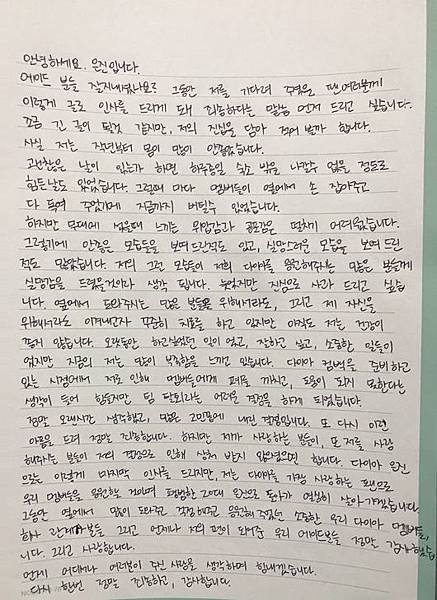 안녕하세요. 은진입니다.
에이드 분들 잘지내셨나요? 그동안 저를 기다려 주셨을 팬여러분께
이렇게 글로 인사를 드리게 돼 죄송하다는 말씀 먼저 드리고 싶습니다.
조금 긴 글이 될것 같지만, 저의 진심을 담아 적어 볼까 합니다.
사실 저는 작년부터 몸이 많이 안좋았습니다.
괜찮은 날이 있는가 하면 하루종일 숙소 밖을 나갈수 없을 정도로
힘든날도 있었습니다. 그럴때 마다 멤버들이 옆에서 손 잡아주고
다 독여 주었기에 지금까지 버틸수 있었습니다.
하지만 무대에 섰을때 느끼는 위압감과 공포감은 떨치기 어려웠습니다.
그렇기에 안좋은 모습들을 보여드린적도 있고, 실망스러운 모습을 보여드린
적도 많았습니다. 저의 그런 모습들이 저희 다이아를 응원해주시는 많은 분들께
실망감을 드렸을것이라 생각 됩니다. 늦었지만 진심으로 사과 드리고 싶습
니다. 옆에서 도와주시는 많은 분들을 위해서라도, 그리고 제 자신을
위해서라도 이겨내고자 꾸준히 치료를 하고 있지만 아직도 저는 건강이
좋지 않습니다. 오랫동안 하고싶었던 일이 었고, 잘하고 싶고, 소중한 일들이
었지만 지금의 저는 많이 부족함을 느끼고 있습니다. 다이아 컴백을 준비하고
있는 시점에서 저로 인해 멤버들에게 폐를 끼치고, 도움이 되지 못한다는
생각이 들어 힘들지만 팀 탈퇴라는 어려운 결정을 하게 되었습니다.
정말 오랜시간 생각했고, 많은 고민끝에 내린 결정입니다. 또 다시 이런
아픔을 드려 정말 죄송합니다. 하지만 제가 사랑하는 분들이, 또 저를 사랑
해주시는 분들이 저의 결정으로 인해 상처 받지 않았으면 합니다. 다이아 은진
으로는 이렇게 마지막 인사를 드리지만, 저는 다이아를 가장 사랑 하는 팬으로
우리 멤버들을 응원할 것이며 평범한 20대 은진으로 돌아가 열심히 살아가겠습니다.
그동안 옆에서 많이 도와주고 걱정해주고 응원해 주었던 소중한 우리 다이아 멤버들,
회사 관계자분들 그리고 언제나 저의 편이 되어준 우리 에이드분들 정말 감사했습
니다. 그리고 사랑합니다.
언제 어디에나 여러분이 주신 사랑을 생각하며 힘내겠습니다.
다시 한번 정말 죄송하고, 감사합니다.